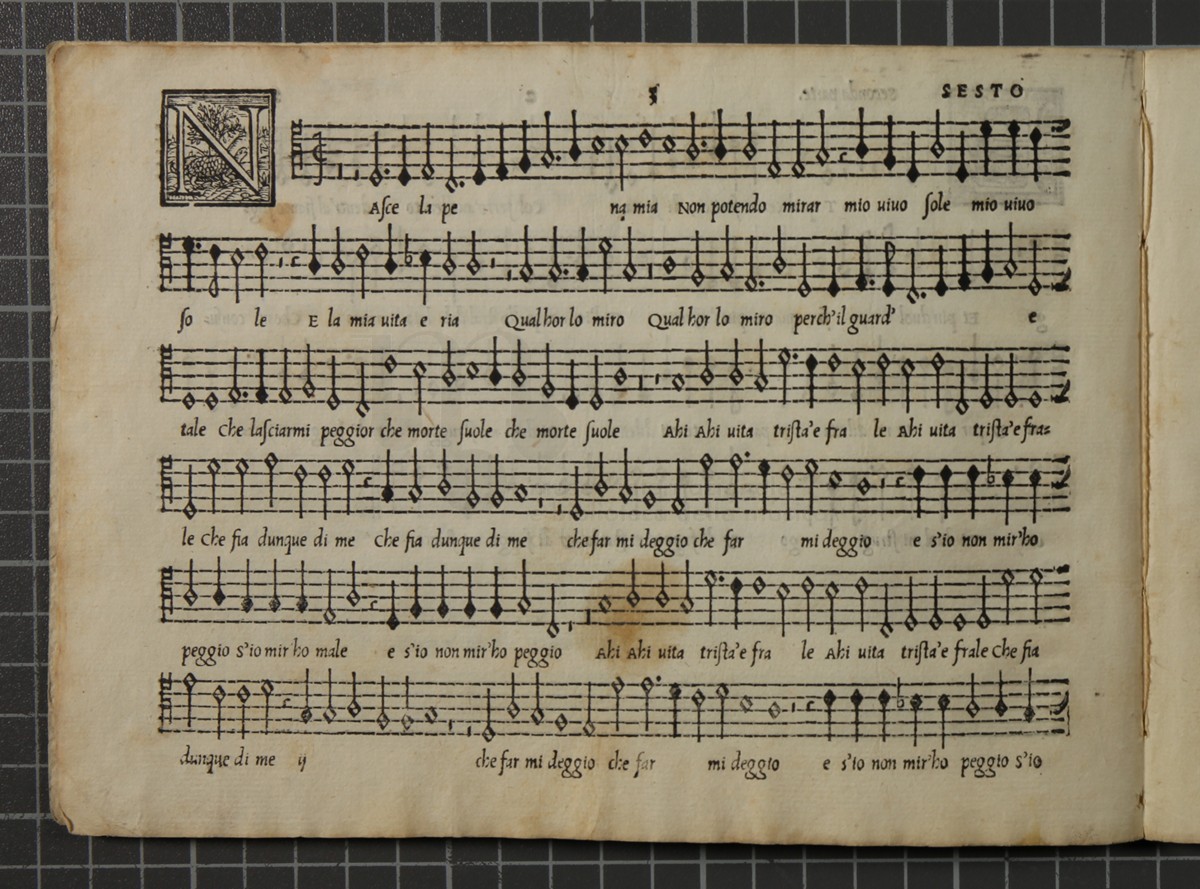 3 SESTO
NAsce la pe na mia Non potendo mirar mio uiuo sole mio uiuo
so le E la mia uita e ria Qual hor lo miro Qual hor lo miro perch'il guard' e
tale Che lasciarmi peggior che morte suole che morte suole Ahi Ahi uita trista'e fra le Ahi uita trista'e fra-
le Che fia dunque di me Che fia dunque di me che far mi deggio che far mi deggio e s'io non mir'ho
peggio s'io mir'ho male e s'io non mir'ho peggio Ahi Ahi uita trista'e fra le Ahi uita trista'e frale Che fia
dunque di me ij che far mi deggio che far mi deggio e s'io non mir'ho peggio s'io